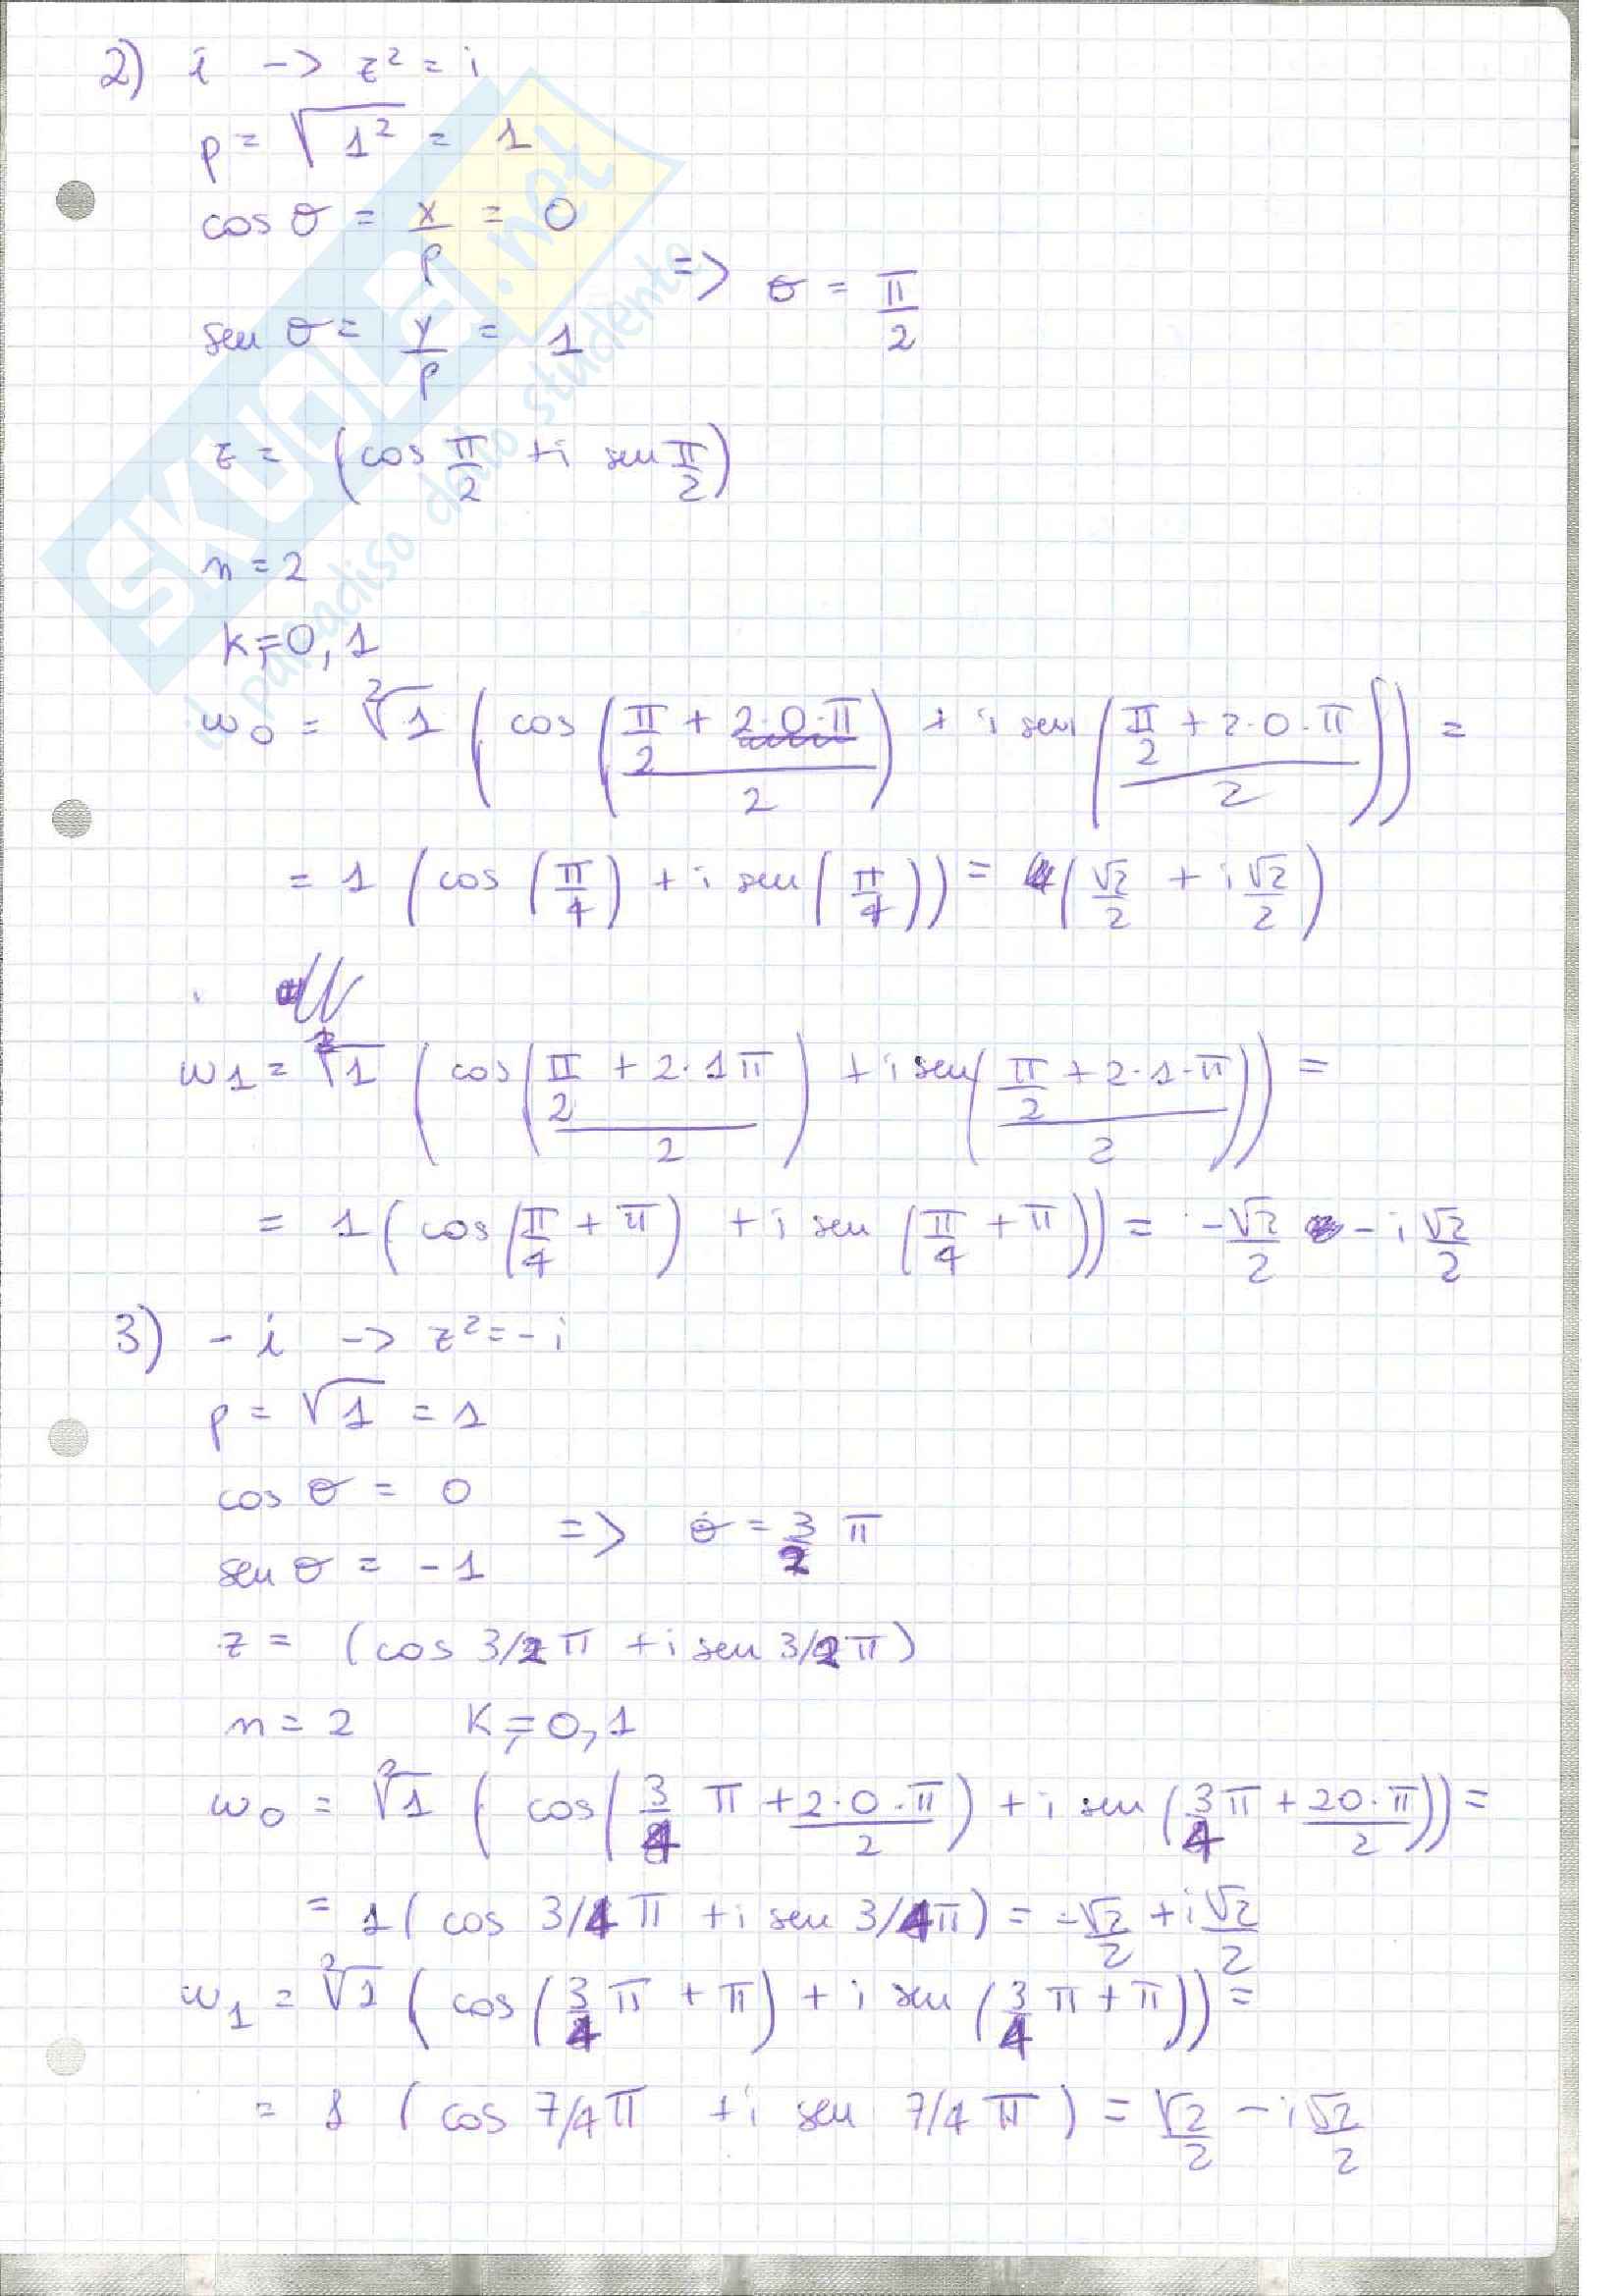 2) i -> z² = i
ρ = √1² = 1
cos θ = x/ρ = 0
=> θ = π/2
sen θ = y/ρ = 1
z = (cos π/2 + i sen π/2)
n = 2
k = 0, 1
w0 = ²√1 (cos ((π/2 + 2·0·π)/2) + i sen ((π/2 + 2·0·π)/2)) =
= 1 (cos (π/4) + i sen (π/4)) = (√2/2 + i √2/2)
w1 = ²√1 (cos ((π/2 + 2·1π)/2) + i sen ((π/2 + 2·1·π)/2)) =
= 1 (cos (π/4 + π) + i sen (π/4 + π)) = -√2/2 - i √2/2
3) - i -> z² = - i
ρ = √1 = 1
cos θ = 0
=> θ = 3/2 π
sen θ = - 1
z = (cos 3/2 π + i sen 3/2 π)
n = 2 K = 0, 1
w0 = ²√1 (cos (3/4 π + 2·0·π/2) + i sen (3/4 π + 20·π/2)) =
= 1 (cos 3/4 π + i sen 3/4 π) = -√2/2 + i √2/2
w1 = ²√1 (cos (3/4 π + π) + i sen (3/4 π + π)) =
= 1 (cos 7/4 π + i sen 7/4 π) = √2/2 - i √2/2
SKUOLA.net
il paradiso dello studente